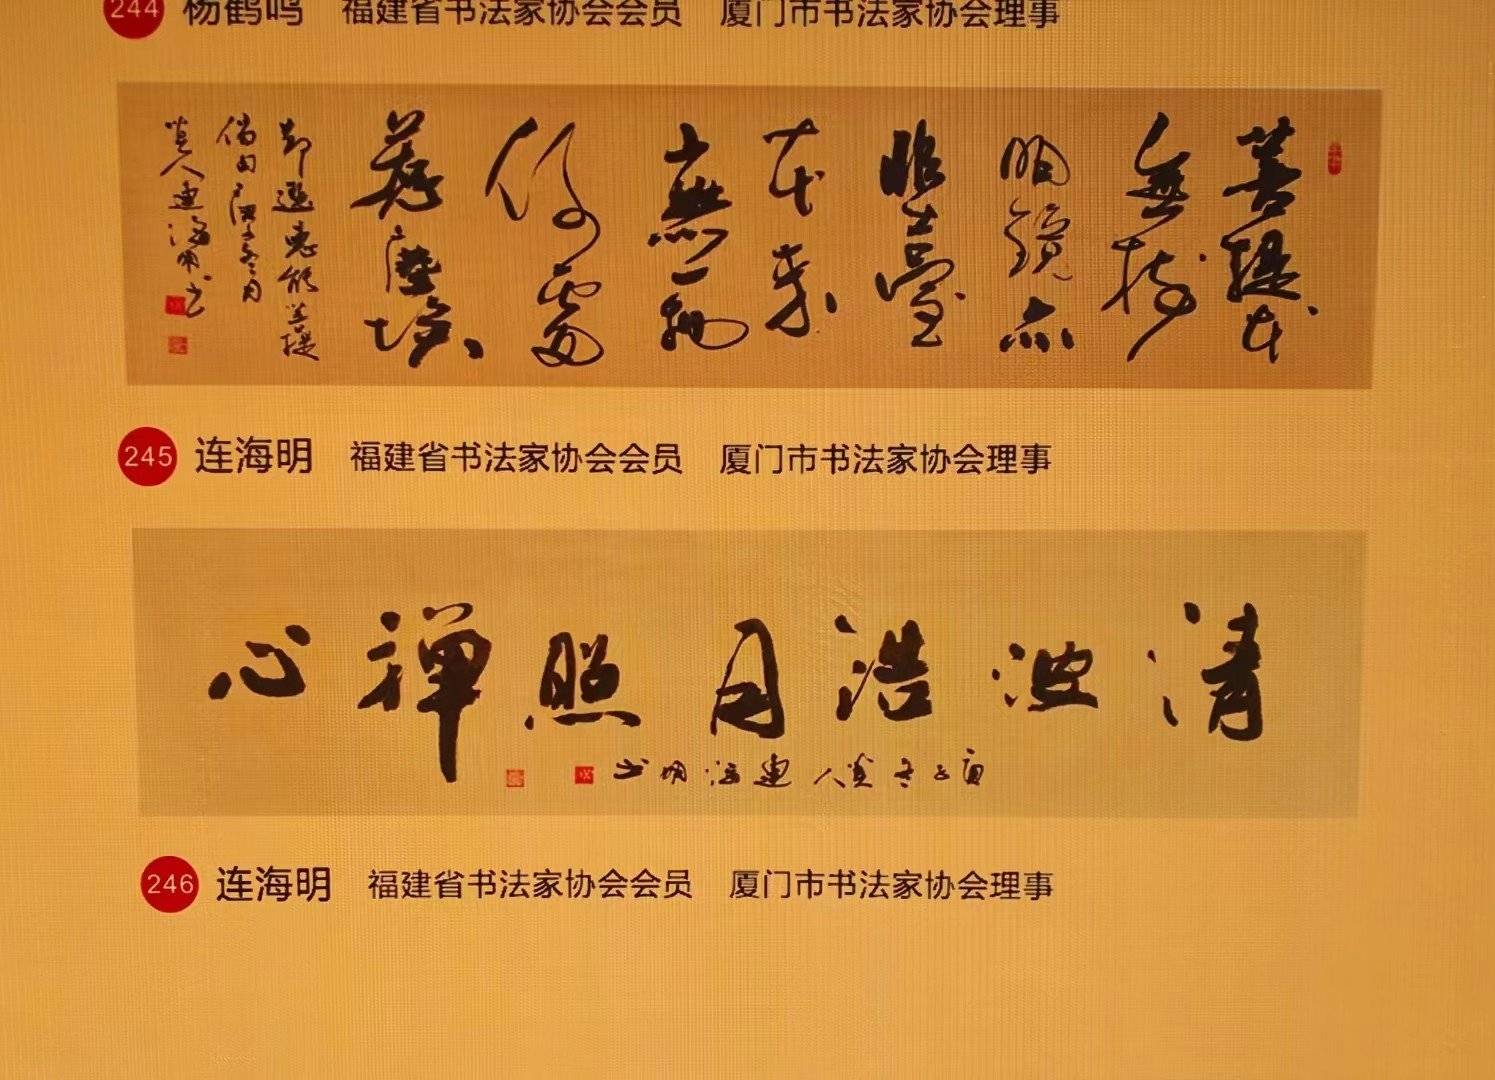 244 杨鹤鸣 福建省书法家协会会员 厦门市书法家协会理事
菩提本
無樹
明鏡亦
非臺
本来
無一物
何處
惹塵埃
惠能菩提
偈句
連海明书
245 连海明 福建省书法家协会会员 厦门市书法家协会理事
清波浩月照禅心
連海明书
246 连海明 福建省书法家协会会员 厦门市书法家协会理事